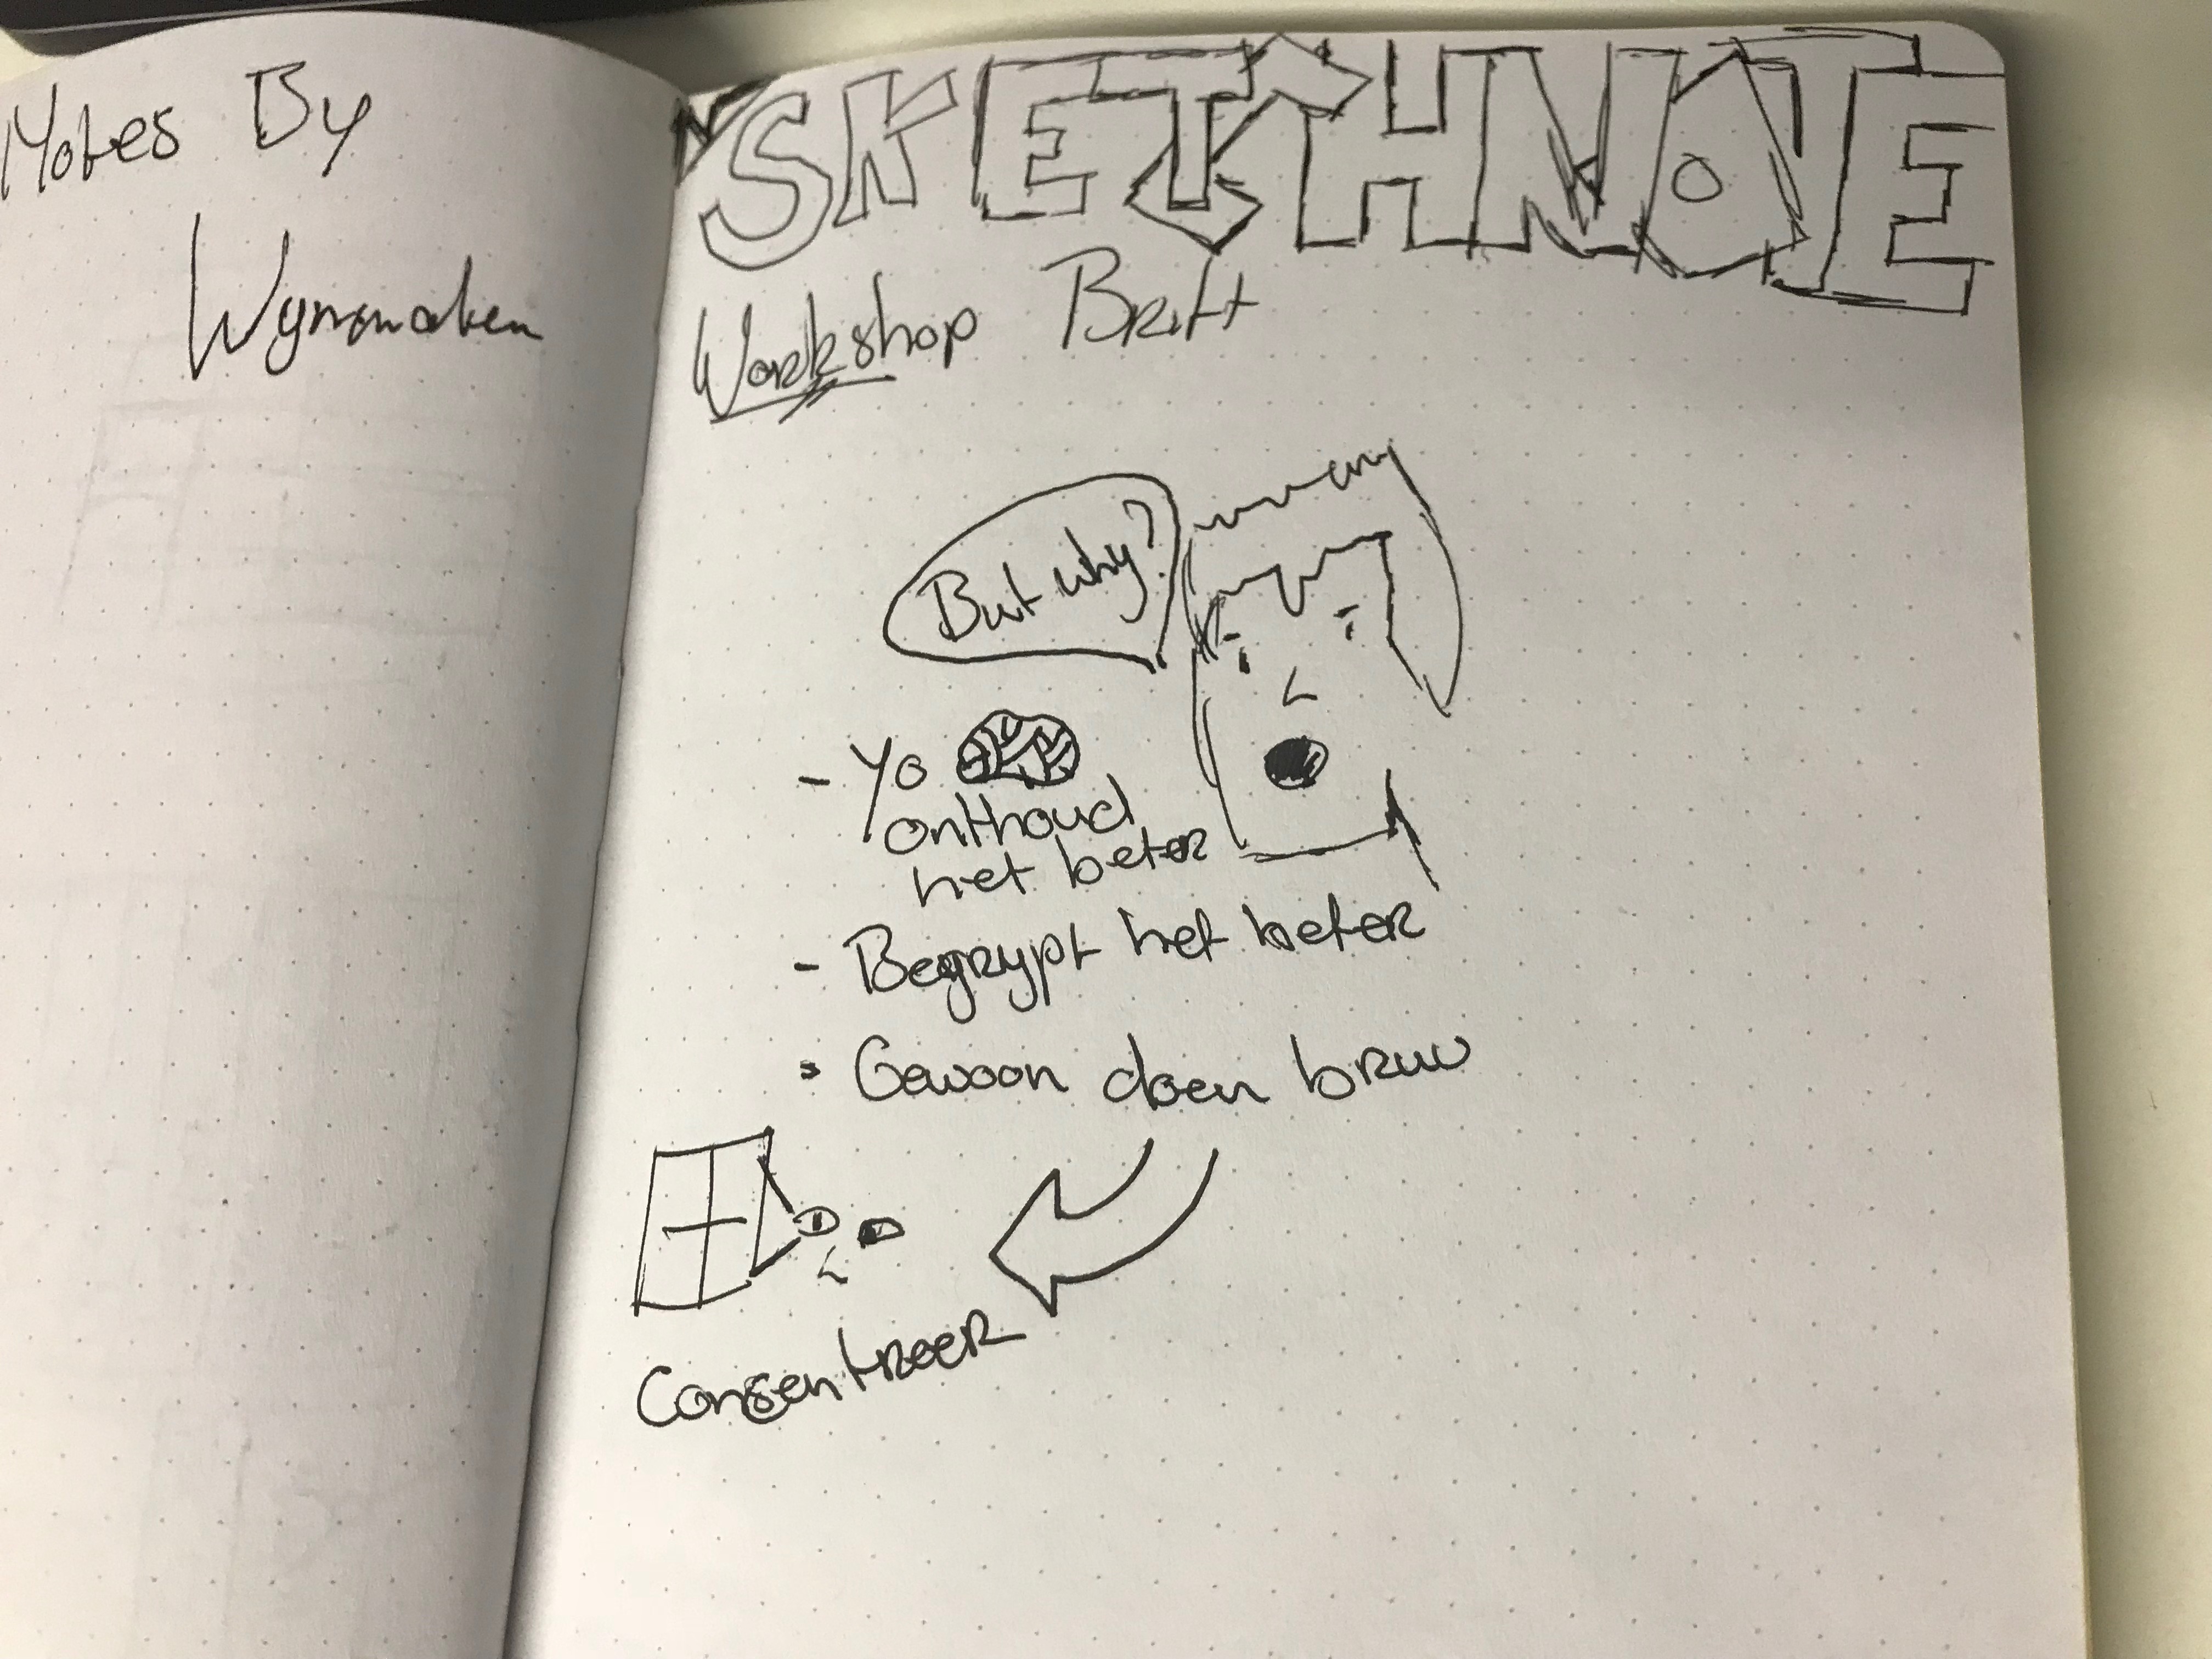 Notes By
SKETCHNOTE
Workshop Britt
But why?
- Yo
onthoud
het beter
- Begrypt het beter
- Gewoon doen bruv
Consentreer